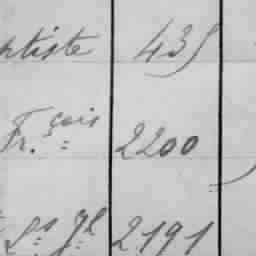 ptiste 435
Fr.çois 2200
Ls gl 2191